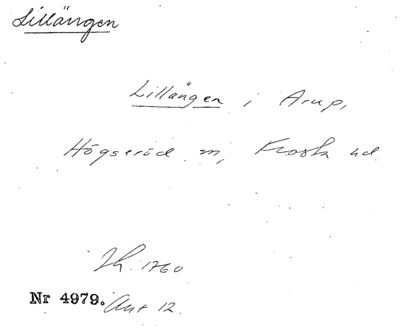 Lillängen
Lillängen i Arup,
Högseröd sn, Frosta hd
Jh. 1760
Nr 4979. Akt 12.